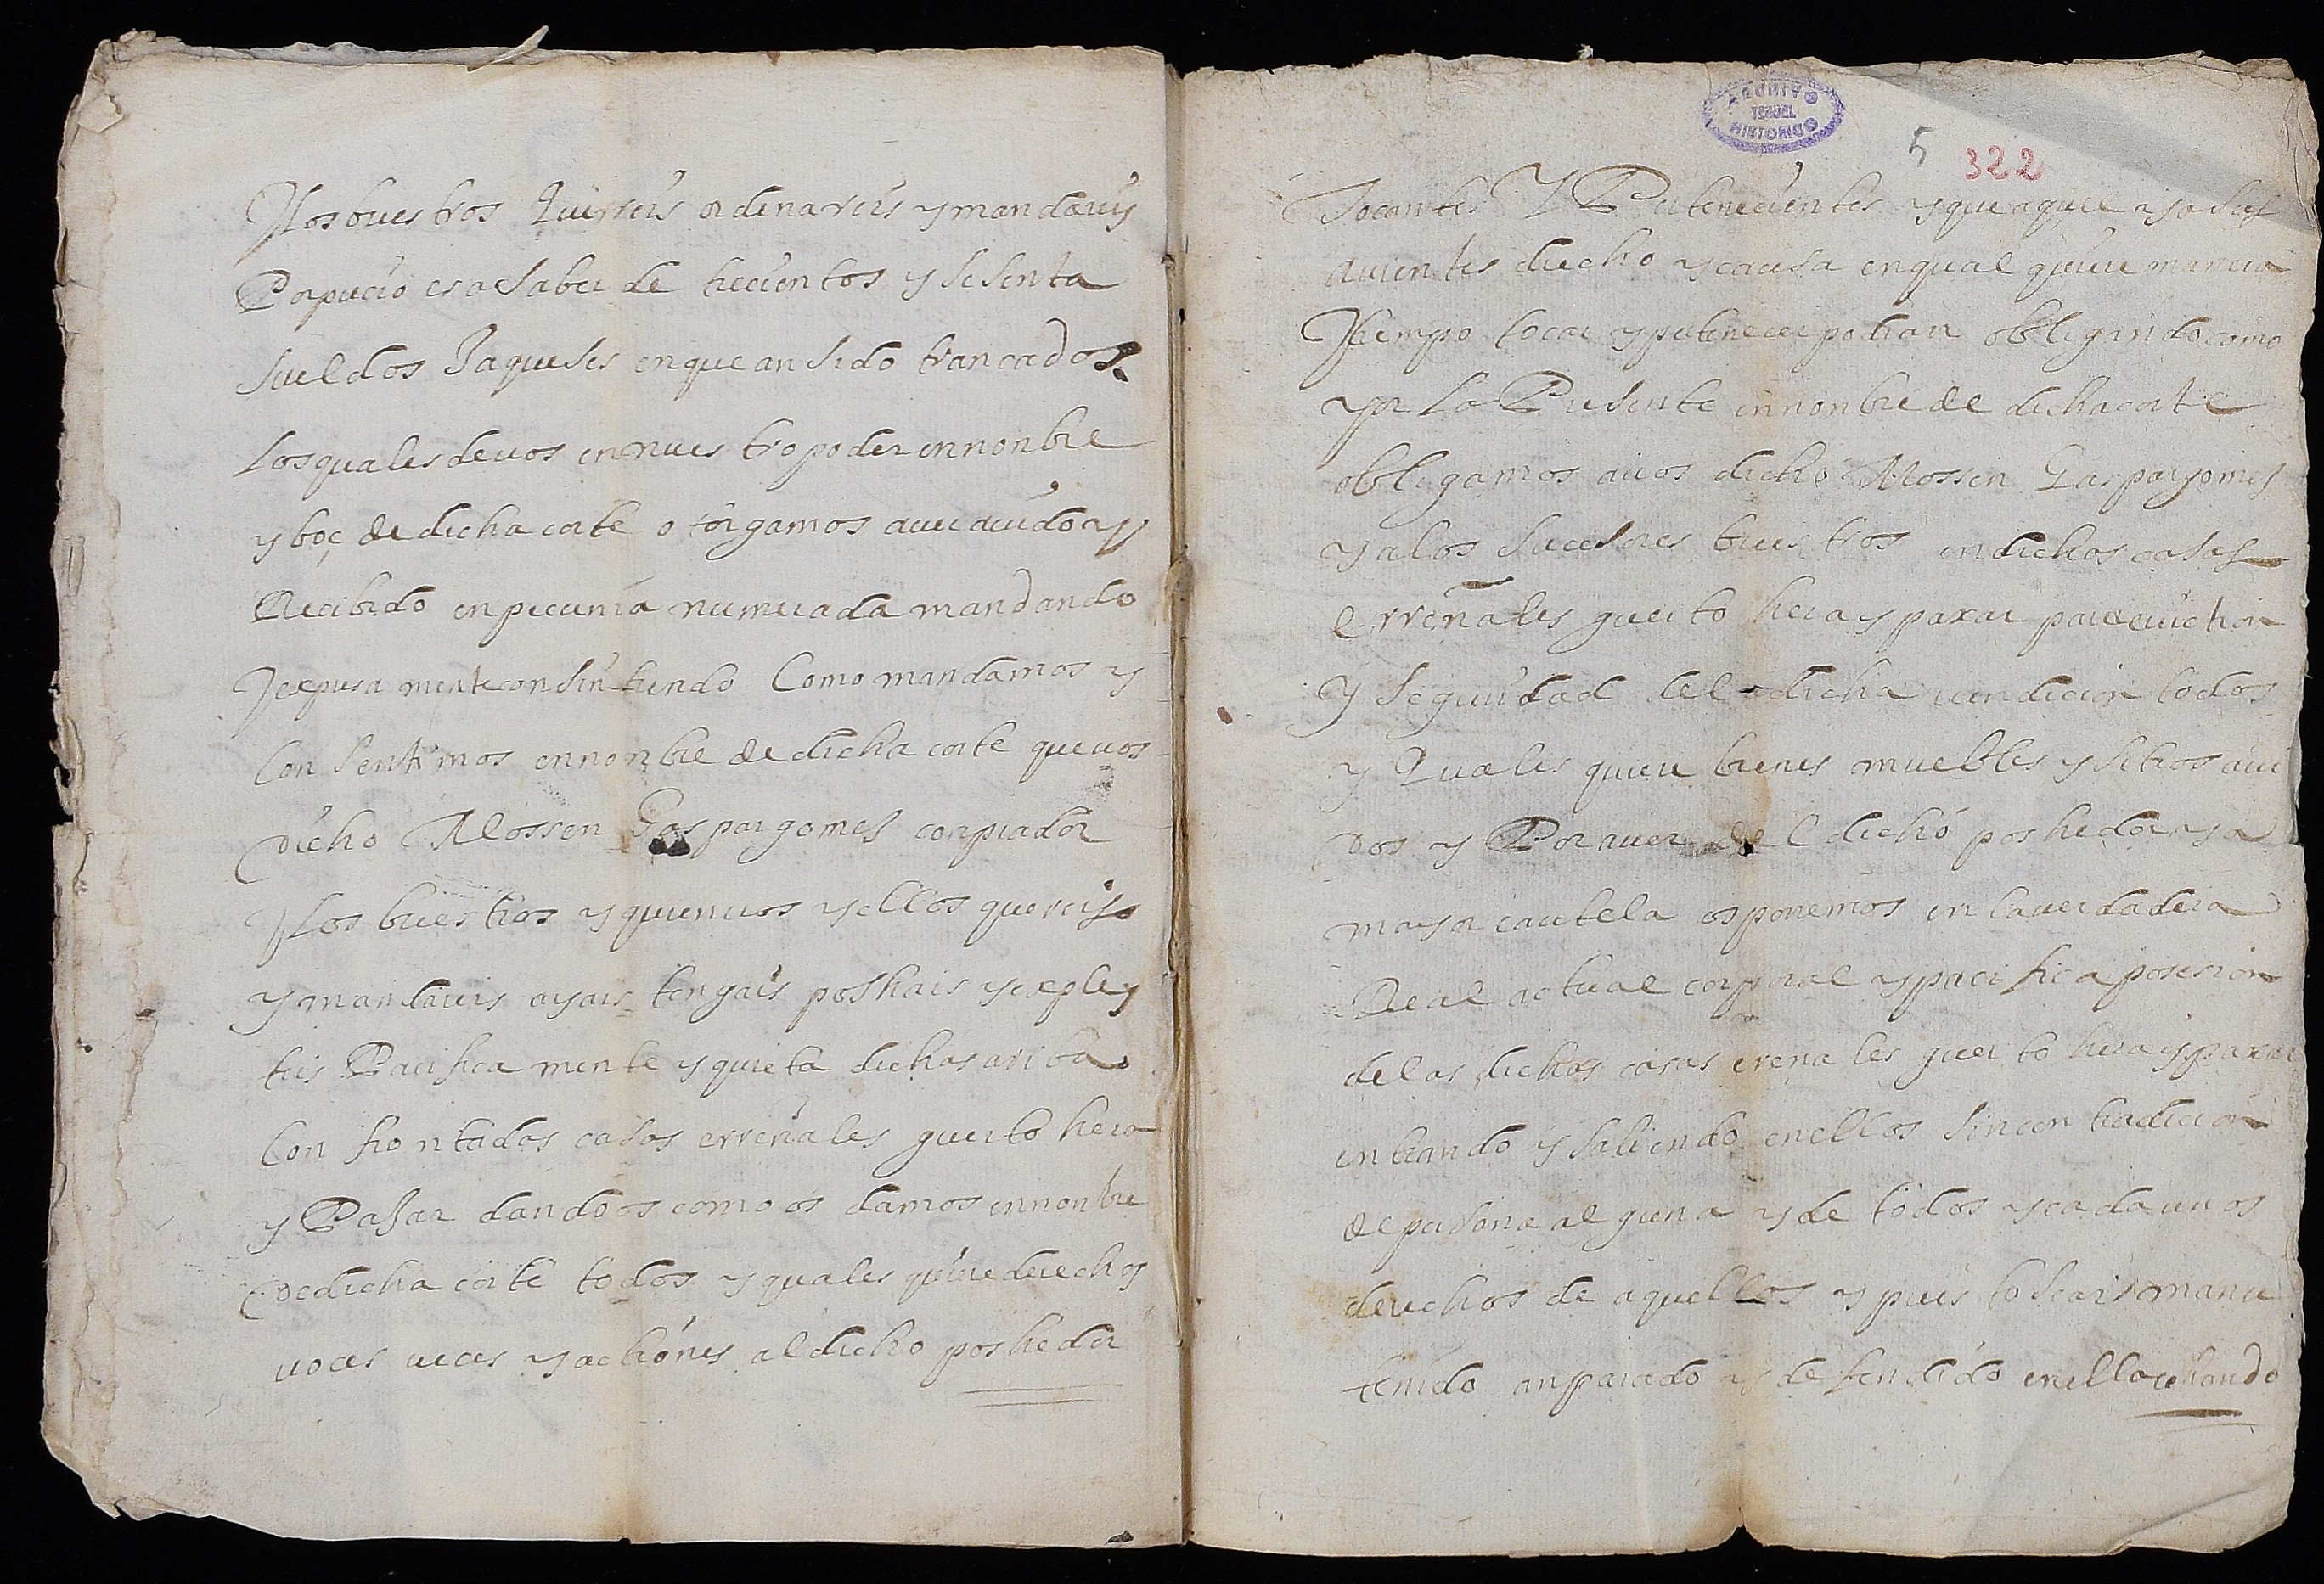 Ylos buestros Querreis ordenareis y mandareis
Por precio es a saber de trecientos y sesenta
sueldos Jaqueses en que an sido trancados
los quales de vos en nuestro poder en nonbre
y boç de dicha corte otorgamos aver avido y
Recibido en pecunia numerada mandando
Y expresamente consintiendo Como mandamos y
Consentimos en nonbre de dicha corte que vos
dicho Mossen Gaspar gomes conprador
Y los buestros y quien vos y ellos querreis
y mandareis ayais tengais poshais y expley
teis Pacificamente y quieta dichas ariba
Confrontadas casas erreñales guerto hera
y Pasar dandoos como os damos en nonbre
de dicha corte todos y quales quiere derechos
voces veces y actiones al dicho poshedor
ARCHIVO
TERUEL
HISTORICO
5 322
Tocantes Y Pertenecientes y que a quel y a sus
avientes drecho y causa en qual quiere manera
Y tiempo tocar y pertenecer podian obligando como
por la Presente en nonbre de dicha corte
obligamos a vos dicho Mossen Gaspar gomes
y a los sucesores buestros en dichas casas
erreñales guerto hera y paxar para eviction
Y seguridad de la dicha vendicion todos
y Quales quiere bienes muebles y sitios avi
dos y Por aver del dicho poshedor y a
mayor cautela os ponemos en la verdadera
Real actual corporal y pacifica posesion
de las dichas casas ereñales guerto hera y paxar
entrando y saliendo en ellos sin contradicion
de persona alguna y de todos y cada unos
derechos de aquellos y puesto seais mane
tenido anparado y defendido en ella echando